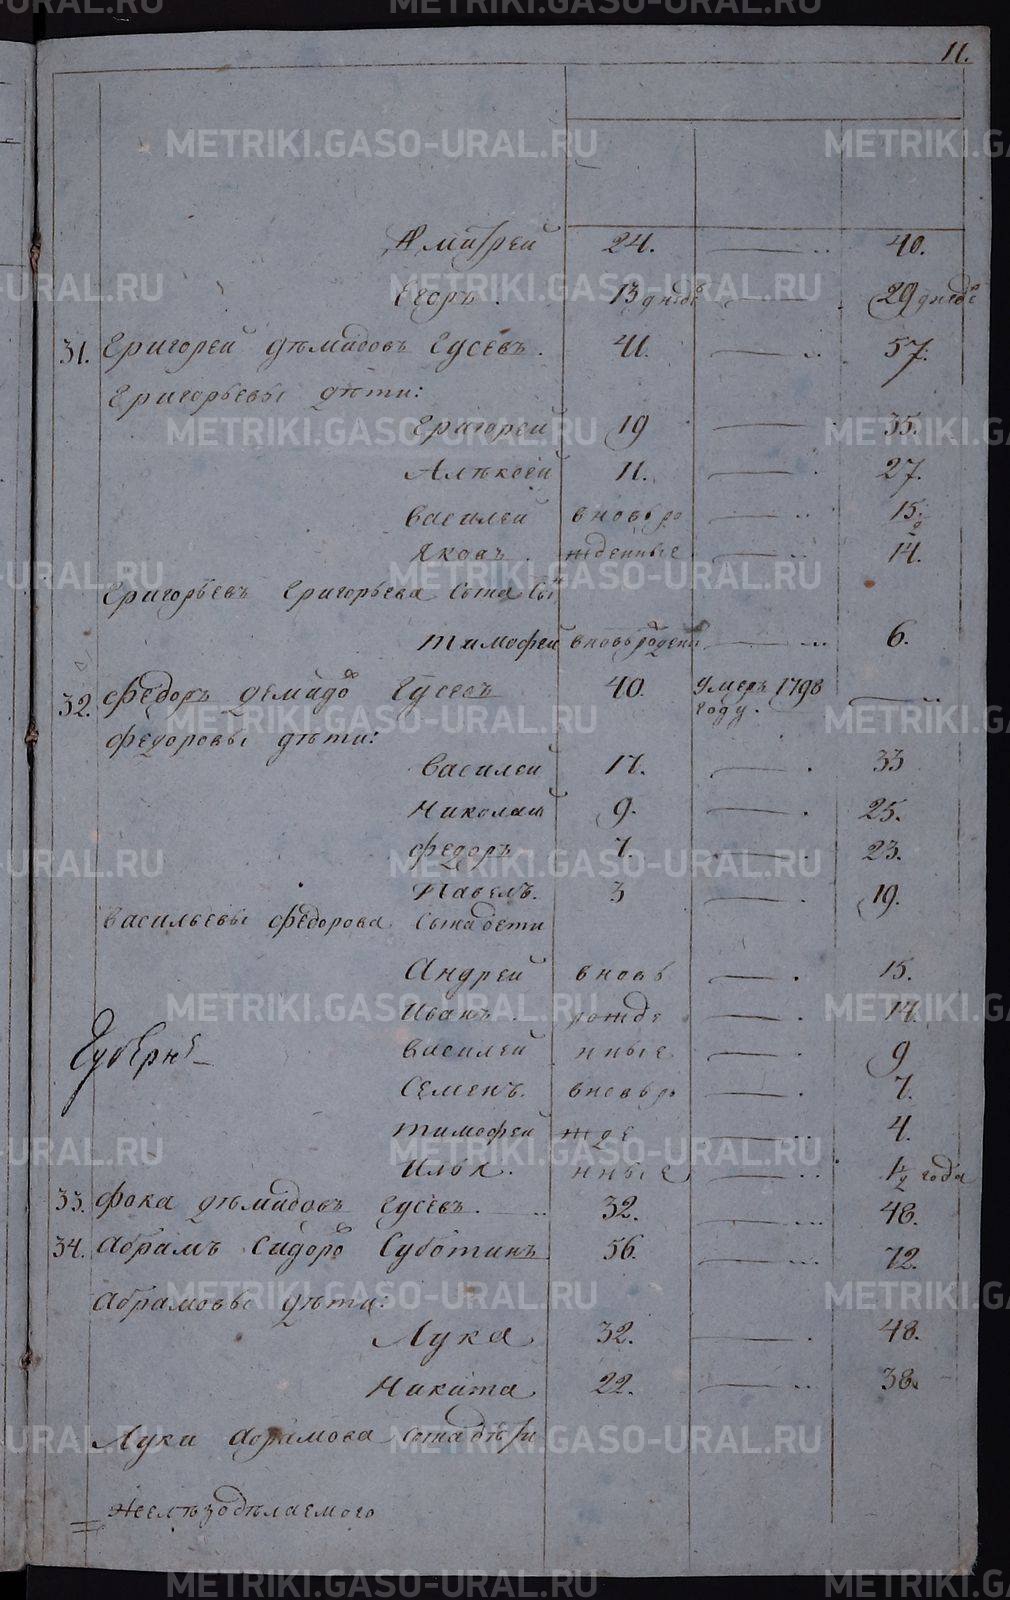 11.
Дмитрей 24. 40.
Егоръ. 13 дней 29 дней
31. Григорей Дѣмидовъ Гусевъ. 41. 57.
Григорьевы дѣти:
Григорей 19 35.
Алѣксей 11. 27.
Василей вновь ро 15 1/2
Яковъ. жденные 14.
Григорьевъ Григорьева сына сы
Тимофей вновьрожден 6.
32. Федоръ Демидо Гусевъ 40. умеръ 1798 году.
Федоровы дѣти:
Василей 17. 33
Николай 9. 25.
Федоръ 7. 23.
Павелъ. 3 19.
Васильевы Федорова сына дети
Андрей вновь 15.
Иванъ. рожде 14.
Василей нные 9
Семенъ. вновь ро 7.
Тимофей жде 4.
Илья. нные 1/2 года
Губерне
33. Фока Дѣмидовъ Гусевъ. 32. 48.
34. Абрамъ Сидоро Суботинъ 56. 72.
Абрамовы дѣти:
Лука 32. 48.
Никита 22. 38.
Луки Абрамова сына дѣти
Желѣзодѣлаемого
METRIKI.GASO-URAL.RU